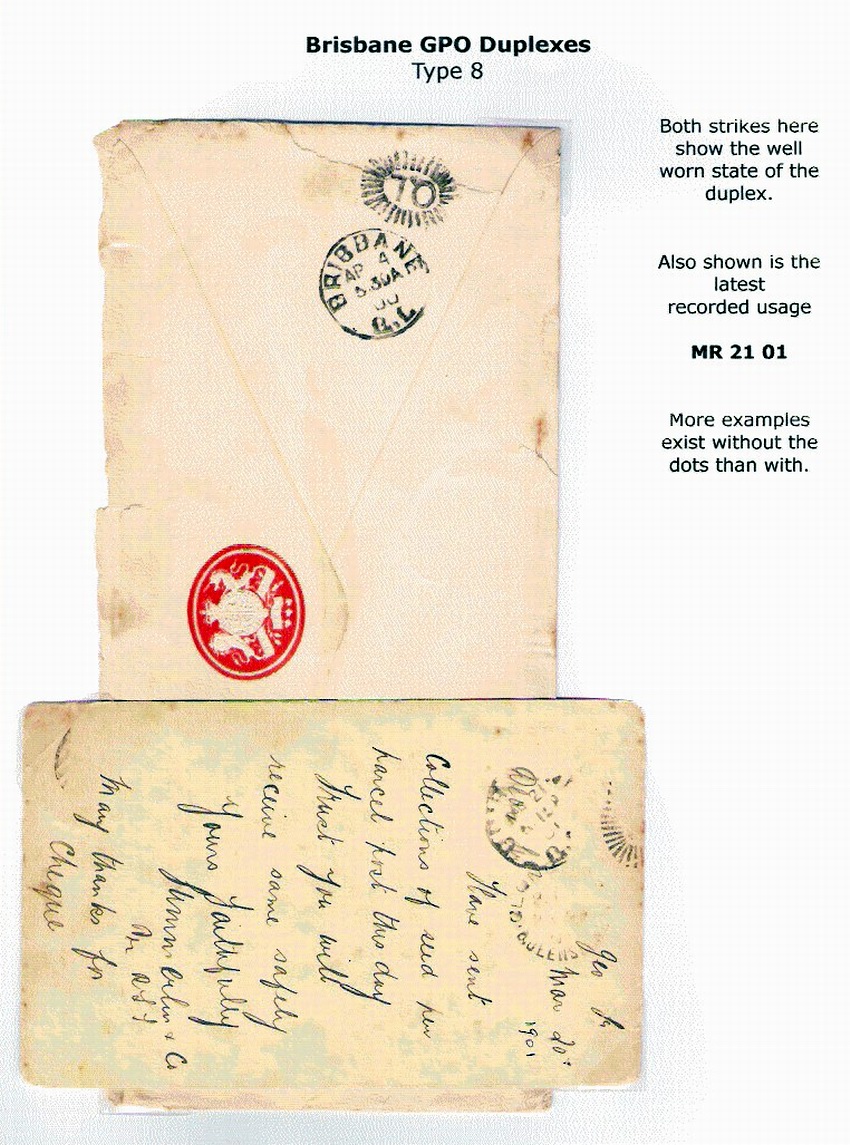 Brisbane GPO Duplexes
Type 8
Both strikes here
show the well
worn state of the
duplex.
Also shown is the
latest
recorded usage
MR 21 01
More examples
exist without the
dots than with.
BRISBANE
AP 4
5.30A
00
Q.L
Mar 20
1901
Have sent
Collections of seed per
parcel post this day
Trust you will
receive same safely
Yours faithfully
& Co
Many thanks for
Cheque